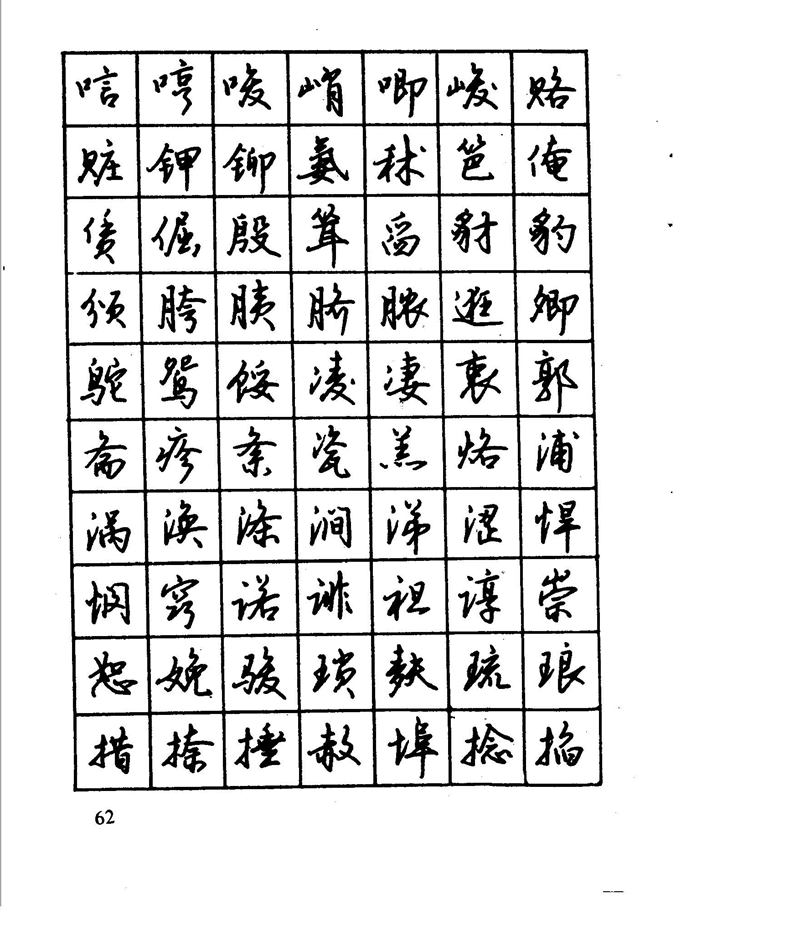 唁哼唆峭唧峻赂
赃钾铆氨秫笆俺
赁倔殷耸舀豺豹
颁胯胰脐脓逛卿
鸵鸳馁凌凄衷郭
斋疹紊瓷羔烙浦
涡涣涤涧涕涩悍
悯窍诺诽袒谆祟
恕娩骏琐麸琉琅
措捺捶赦埠捻掐
62